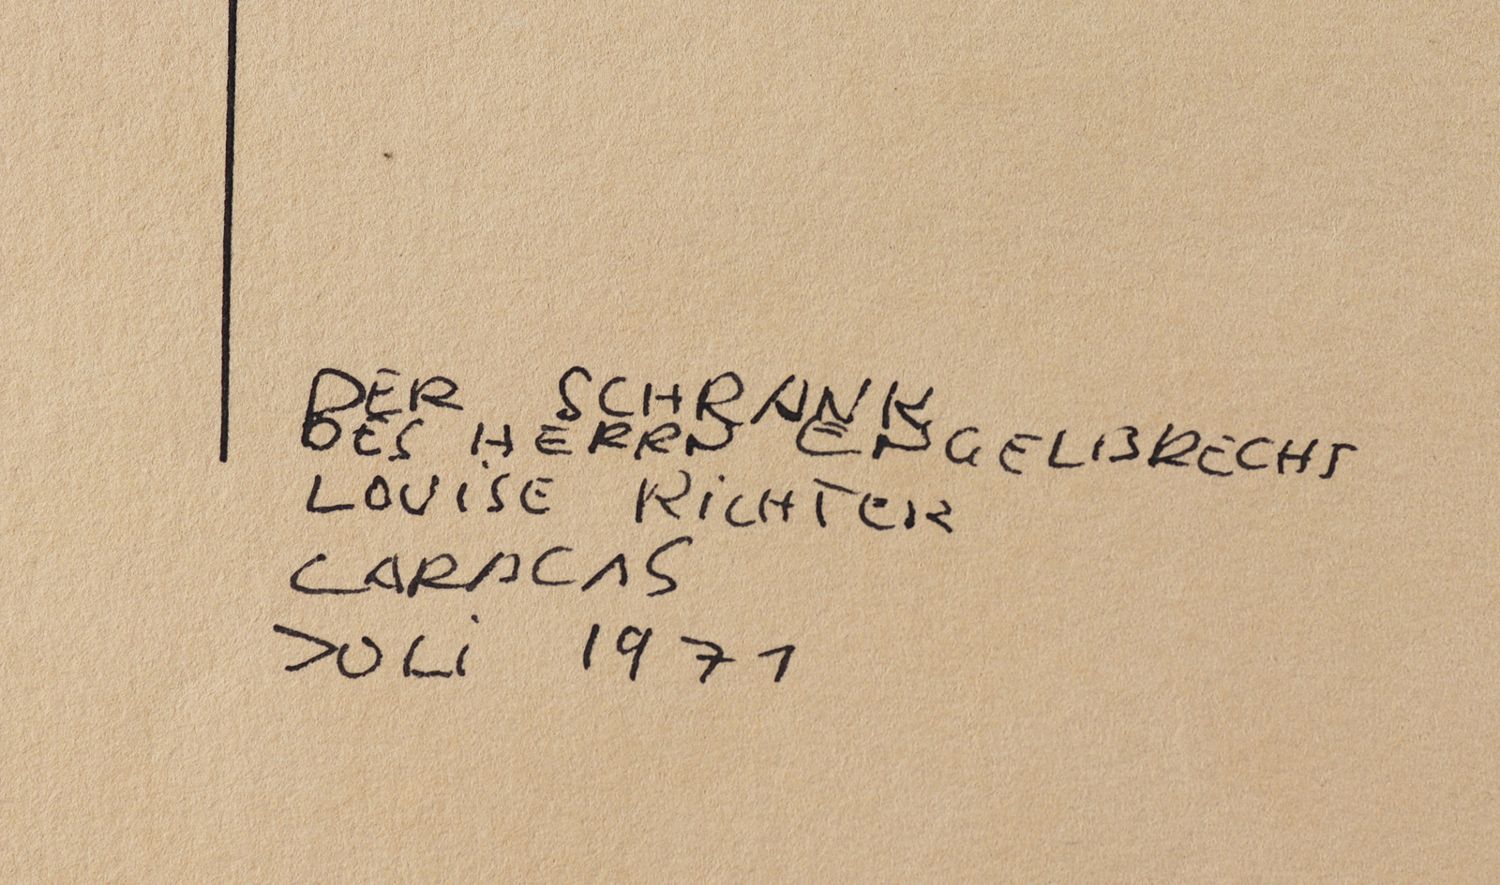 DER SCHRANK
DES HERRN ENGELBRECHT
LOUISE RICHTER
CARACAS
JULI 1971